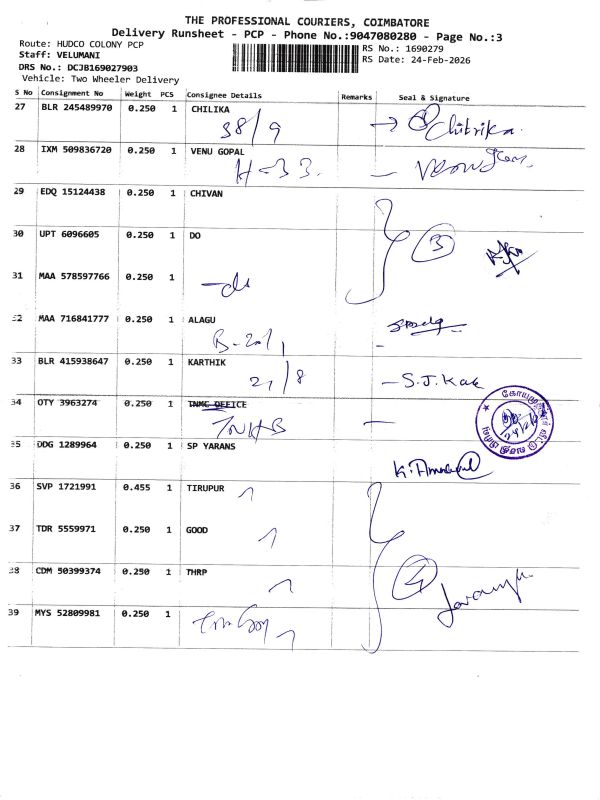 THE PROFESSIONAL COURIERS, COIMBATORE
Delivery Runsheet - PCP - Phone No.:9047080280 - Page No.:3
Route: HUDCO COLONY PCP
RS No.: 1690279
Staff: VELUMANI
RS Date: 24-Feb-2026
DRS No.: DCJB169027903
Vehicle: Two Wheeler Delivery
S No Consignment No Weight PCS Consignee Details Remarks Seal & Signature
27 BLR 245489970 0.250 1 CHILIKA
38/9 Chitrika.
28 IXM 509836720 0.250 1 VENU GOPAL
H-33.
29 EDQ 15124438 0.250 1 CHIVAN
30 UPT 6096605 0.250 1 DO
3
31 MAA 578597766 0.250 1
32 MAA 716841777 0.250 1 ALAGU
33 BLR 415938647 0.250 1 KARTHIK
27/8 S.J.
34 OTY 3963274 0.250 1 TNMC OFFICE
TNHB
35 DDG 1289964 0.250 1 SP YARANS
36 SVP 1721991 0.455 1 TIRUPUR
37 TDR 5559971 0.250 1 GOOD
38 CDM 50399374 0.250 1 THRP
4
39 MYS 52809981 0.250 1